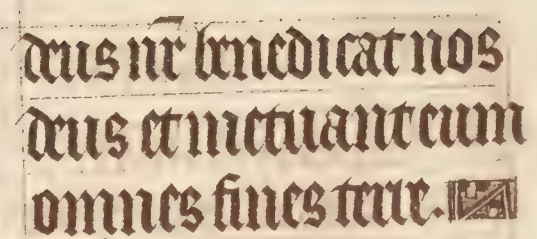 deus nr̄ benedicat nos
deus et metuant eum
omnes fines terre.